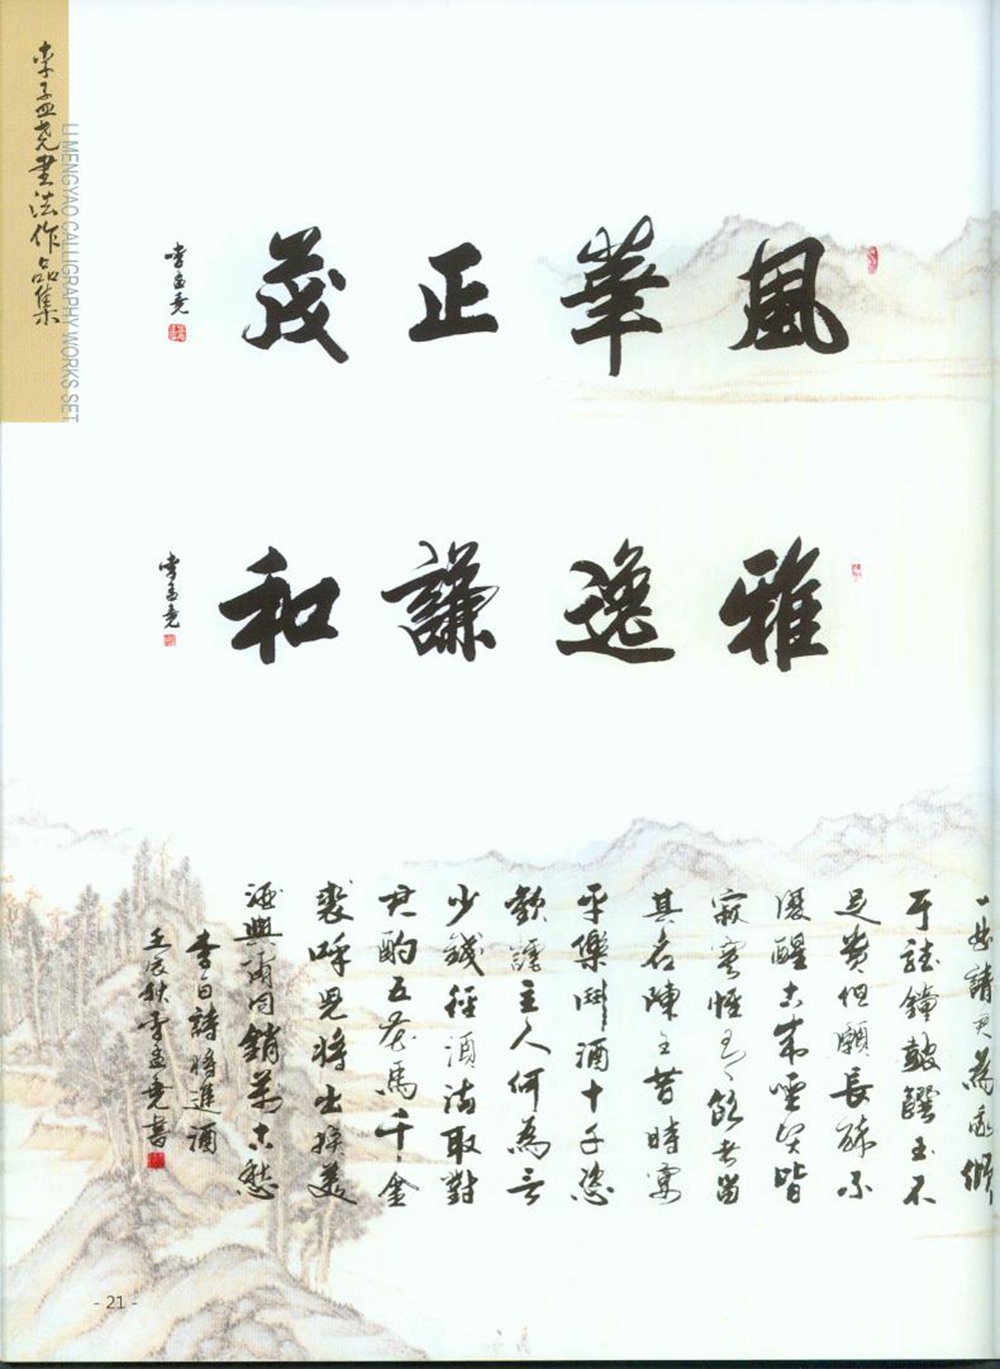 李孟尧書法作品集
LI MENGYAO CALLIGRAPHY WORKS SET
風華正茂
李孟堯
雅逸謙和
李孟堯
一曲請君為我傾
耳聽鐘鼓饌玉不
足貴但願長醉不
復醒古來聖賢皆
寂寞惟有飲者留
其名陳王昔時宴
平樂鬥酒十千恣
歡謔主人何為言
少錢徑須沽取對
君酌五花馬千金
裘呼兒將出換美
酒與爾同銷萬古愁
李白詩將進酒
壬辰秋李孟堯書
- 21 -